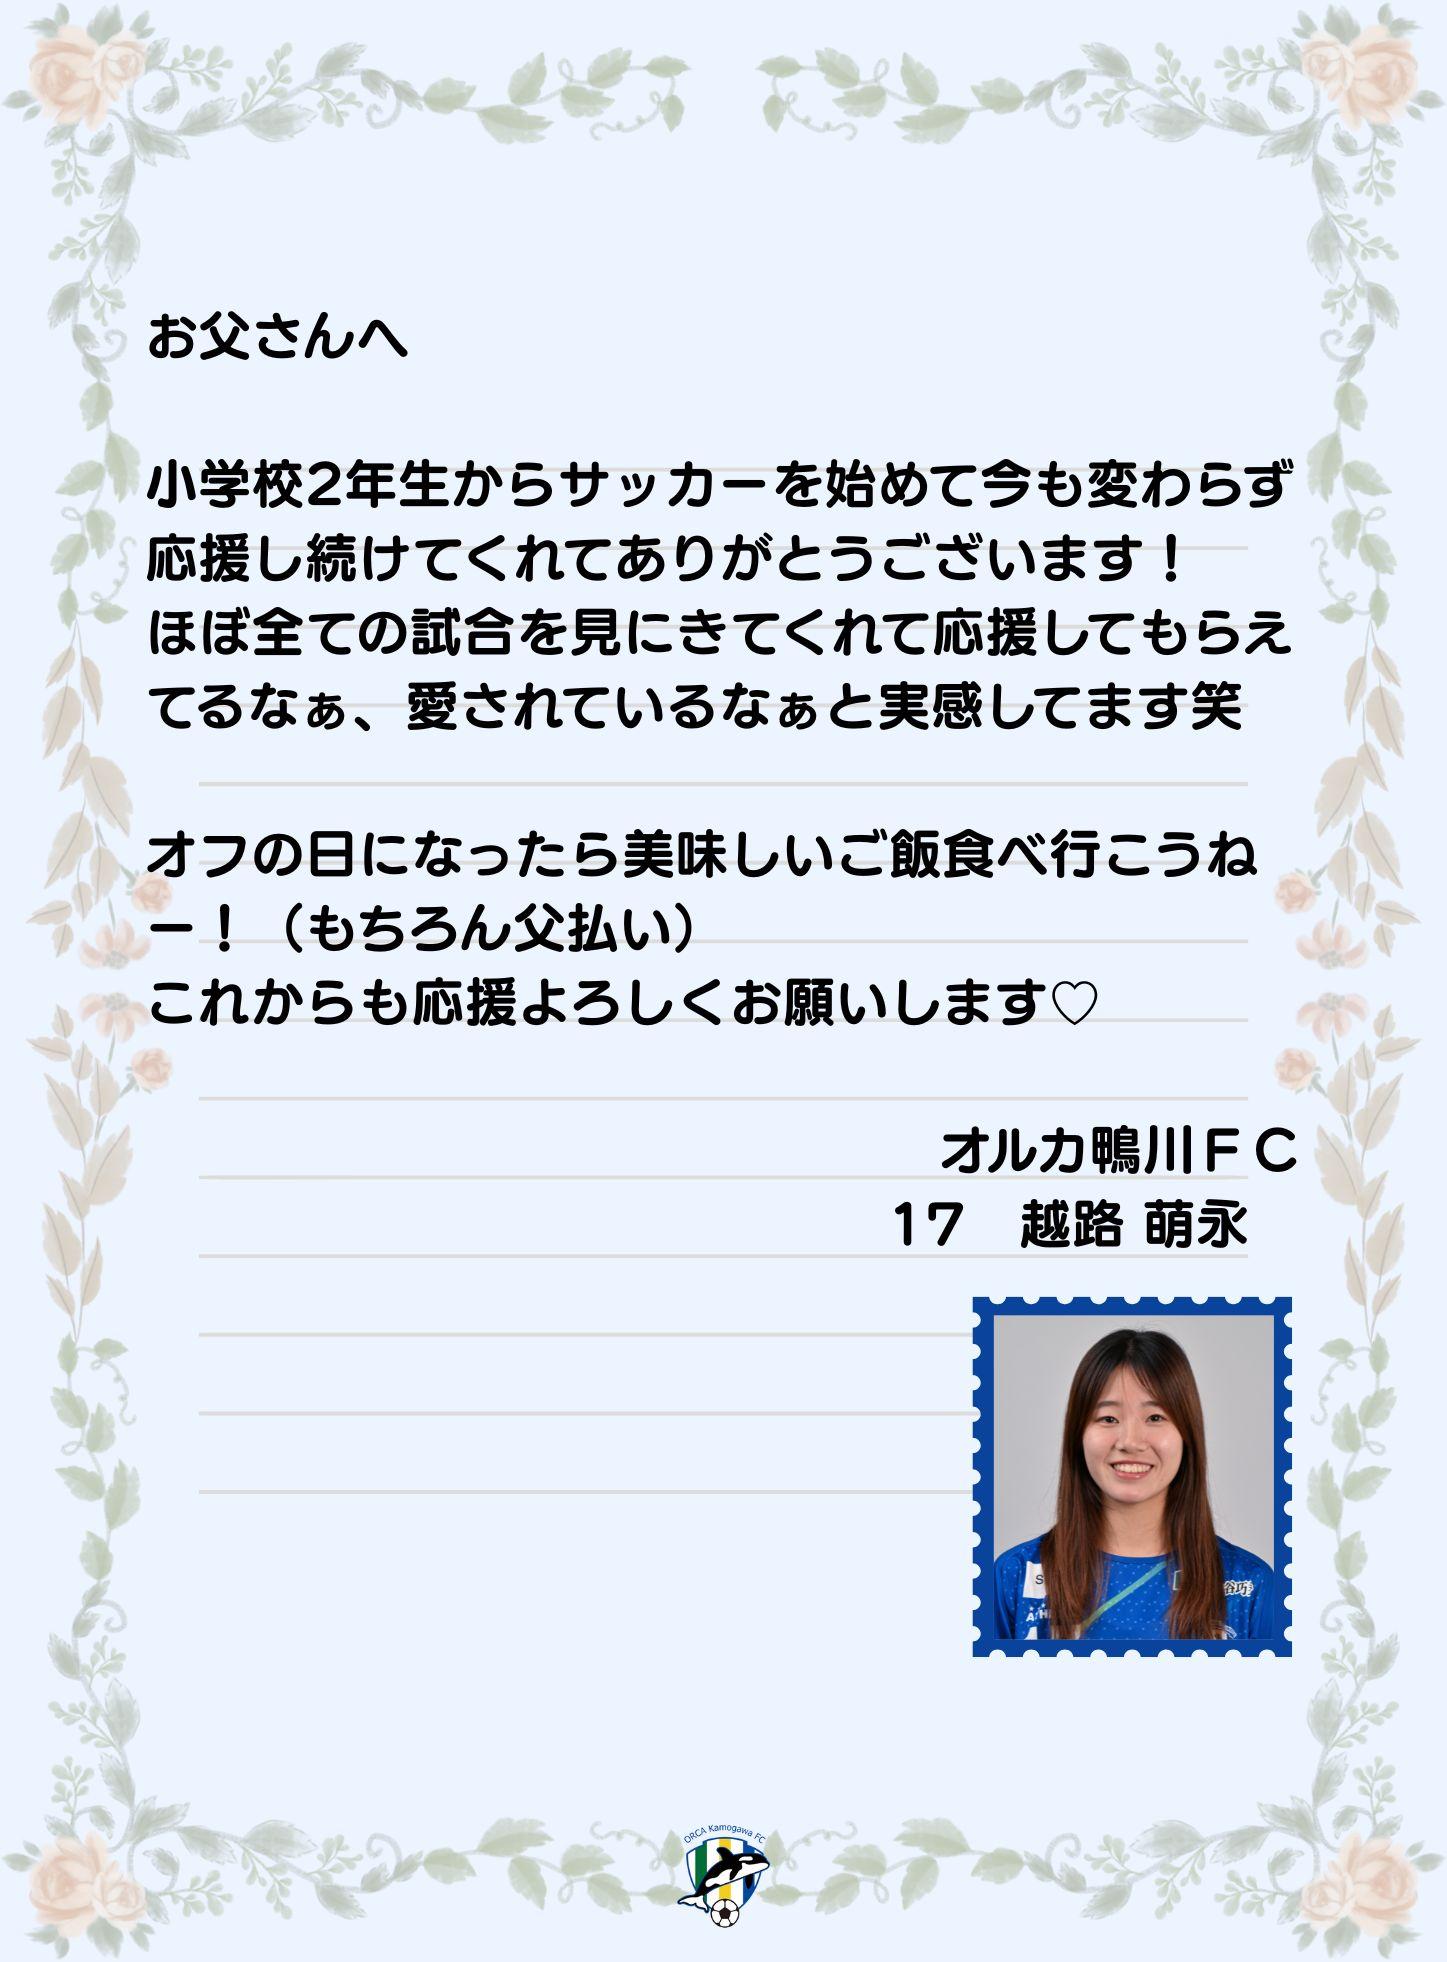 お父さんへ
小学校2年生からサッカーを始めて今も変わらず
応援し続けてくれてありがとうございます！
ほぼ全ての試合を見にきてくれて応援してもらえ
てるなぁ、愛されているなぁと実感してます笑
オフの日になったら美味しいご飯食べ行こうね
ー！（もちろん父払い）
これからも応援よろしくお願いします♡
オルカ鴨川ＦＣ
17　越路 萌永
ORCA Kamogawa FC